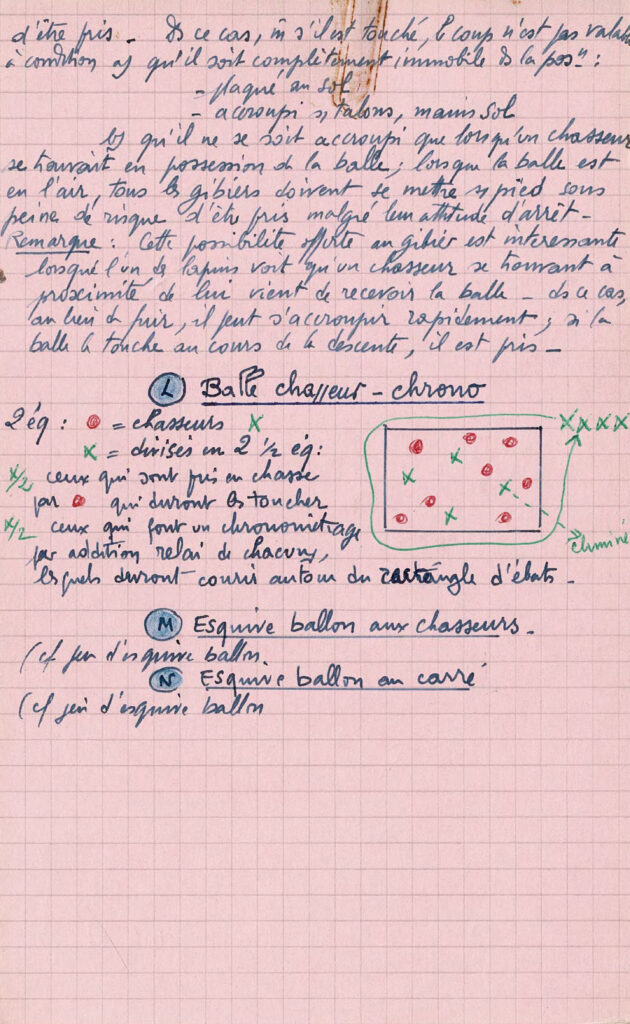 d'être pris _ Ds ce cas, m̂ s'il est touché, le coup n'est pas valable
à condition a) qu'il soit complètement immobile ds la posⁿ :
= plaqué au sol
- accroupi s/ talons, mains sol
b) qu'il ne se soit accroupi que lorsqu'un chasseur
se trouvait en possession de la balle ; lorsque la balle est
en l'air, tous les gibiers doivent se mettre s/ pied sous
peine de risque d'être pris malgré leur attitude d'arrêt _
Remarque : Cette possibilité offerte au gibier est intéressante
lorsque l'un des lapins voit qu'un chasseur se trouvant à
proximité de lui vient de recevoir la balle _ ds ce cas,
au lieu de fuir, il peut s'accroupir rapidement ; si la
balle le touche au cours de la descente, il est pris _
L Balle chasseur - chrono
2 éq : = chasseurs X
x = divisés en 2 ½ éq :
x/2 ceux qui sont pris en chasse
par qui devront les toucher
x/2 ceux qui font un chronométrage
par addition relai de chacun,
lesquels devront courir autour du rectangle d'ébats _
éliminé
M Esquive ballon aux chasseurs _
(cf jeu d'esquive ballon
N Esquive ballon au carré
(cf jeu d'esquive ballon